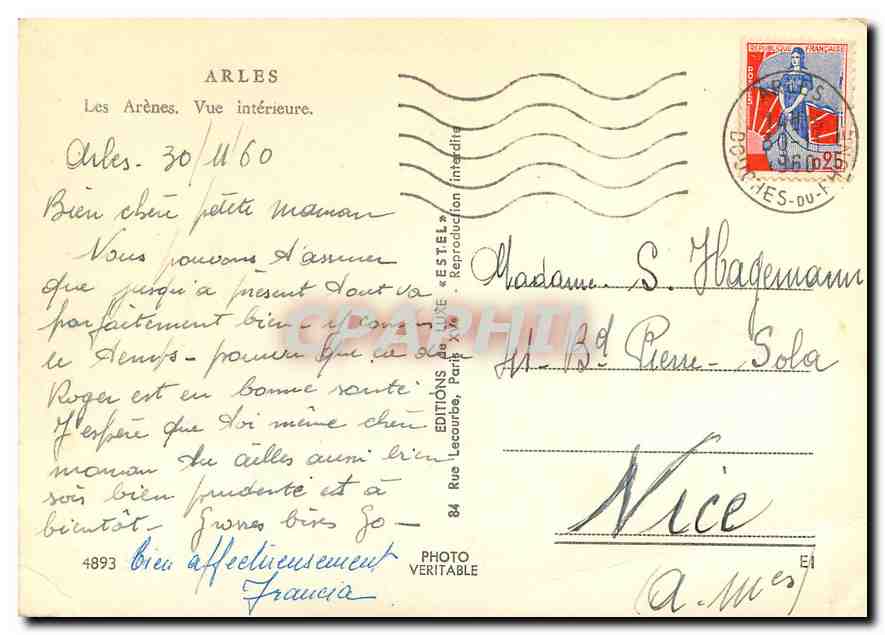 ARLES
Les Arènes. Vue intérieure.
Arles - 30/11/60
Bien chère petite maman
Nous pouvons t'assurer
que jusqu'à présent tout va
parfaitement bien - y compris
le temps - pourvu que ça dure
Roger est en bonne santé
J'espère que toi même chère
maman tu ailles aussi bien
sois bien prudente et à
bientôt - Grosses bises Go -
bien affectueusement
Francia
4893
PHOTO
VERITABLE
EDITIONS de LUXE « ESTEL »
84 Rue Lecourbe, Paris XVe. Reproduction interdite
REPUBLIQUE FRANÇAISE
POSTES
0,25
1960
BOUCHES-DU-RHONE
Madame S. Hagemann
41 - Bd Pierre - Sola
Nice
(A. Mes)
EI
CPAPHIL